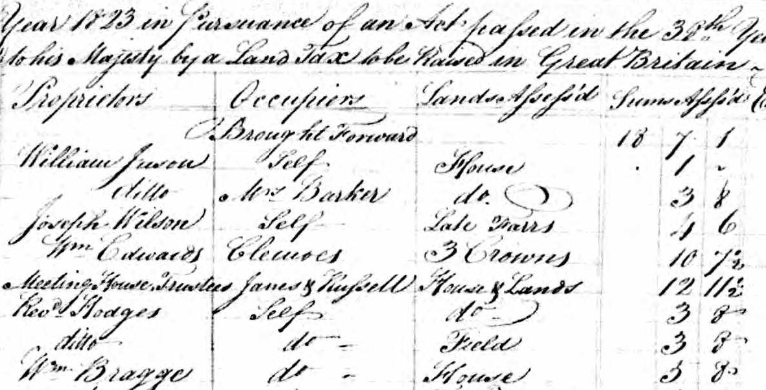 Year 1823 in Pursuance of an Act passed in the 38th Ye
to his Majesty by a Land Tax to be Raised in Great Britain
Proprietors Occupiers Lands Assess'd Sums Ass'd
Brought Forward 18 7 1
William Juson Self House 1 -
ditto Mrs Barker do. 3 8
Joseph Wilson Self Late Farrs 4 6
Wm Edwards 3 Crowns 10 7½
Meeting House Trustees James & Russell House & Lands 12 11½
Revd. Hodges Self do 3 8
ditto do Field 3 8
Wm. Bragge do House 3 8